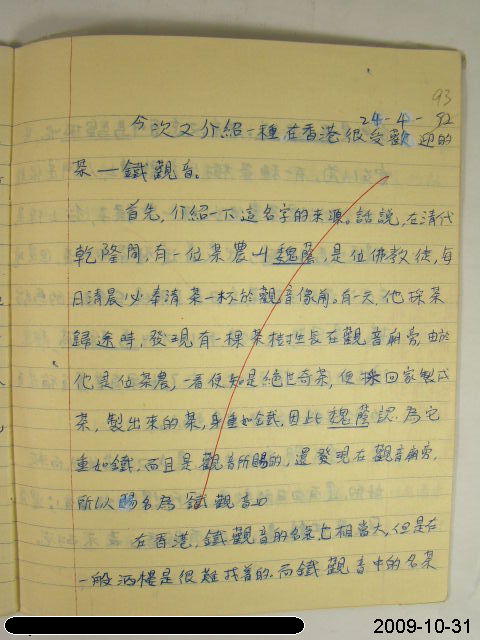 93
24-4-92
今次又介紹一種在香港很受歡迎的
茶—鐵觀音。
首先,介紹一下這名字的來源。話說,在清代
乾隆間,有一位茶農叫魏蔭,是位佛教徒,每
日清晨必奉清茶一杯於觀音像前。有一天,他採茶
歸途時,發現有一棵茶樹生長在觀音廟旁,由於
他是位茶農,一看便知是絕世奇茶,便採回家製成
茶,製出來的茶,身重如鐵,因此魏蔭認為它
重如鐵,而且是觀音所賜的,還發現在觀音廟旁,
所以賜名為「鐵觀音」。
在香港,鐵觀音的名氣也相當大,但是在
一般酒樓是很難找着的。而鐵觀音中的名茶
2009-10-31